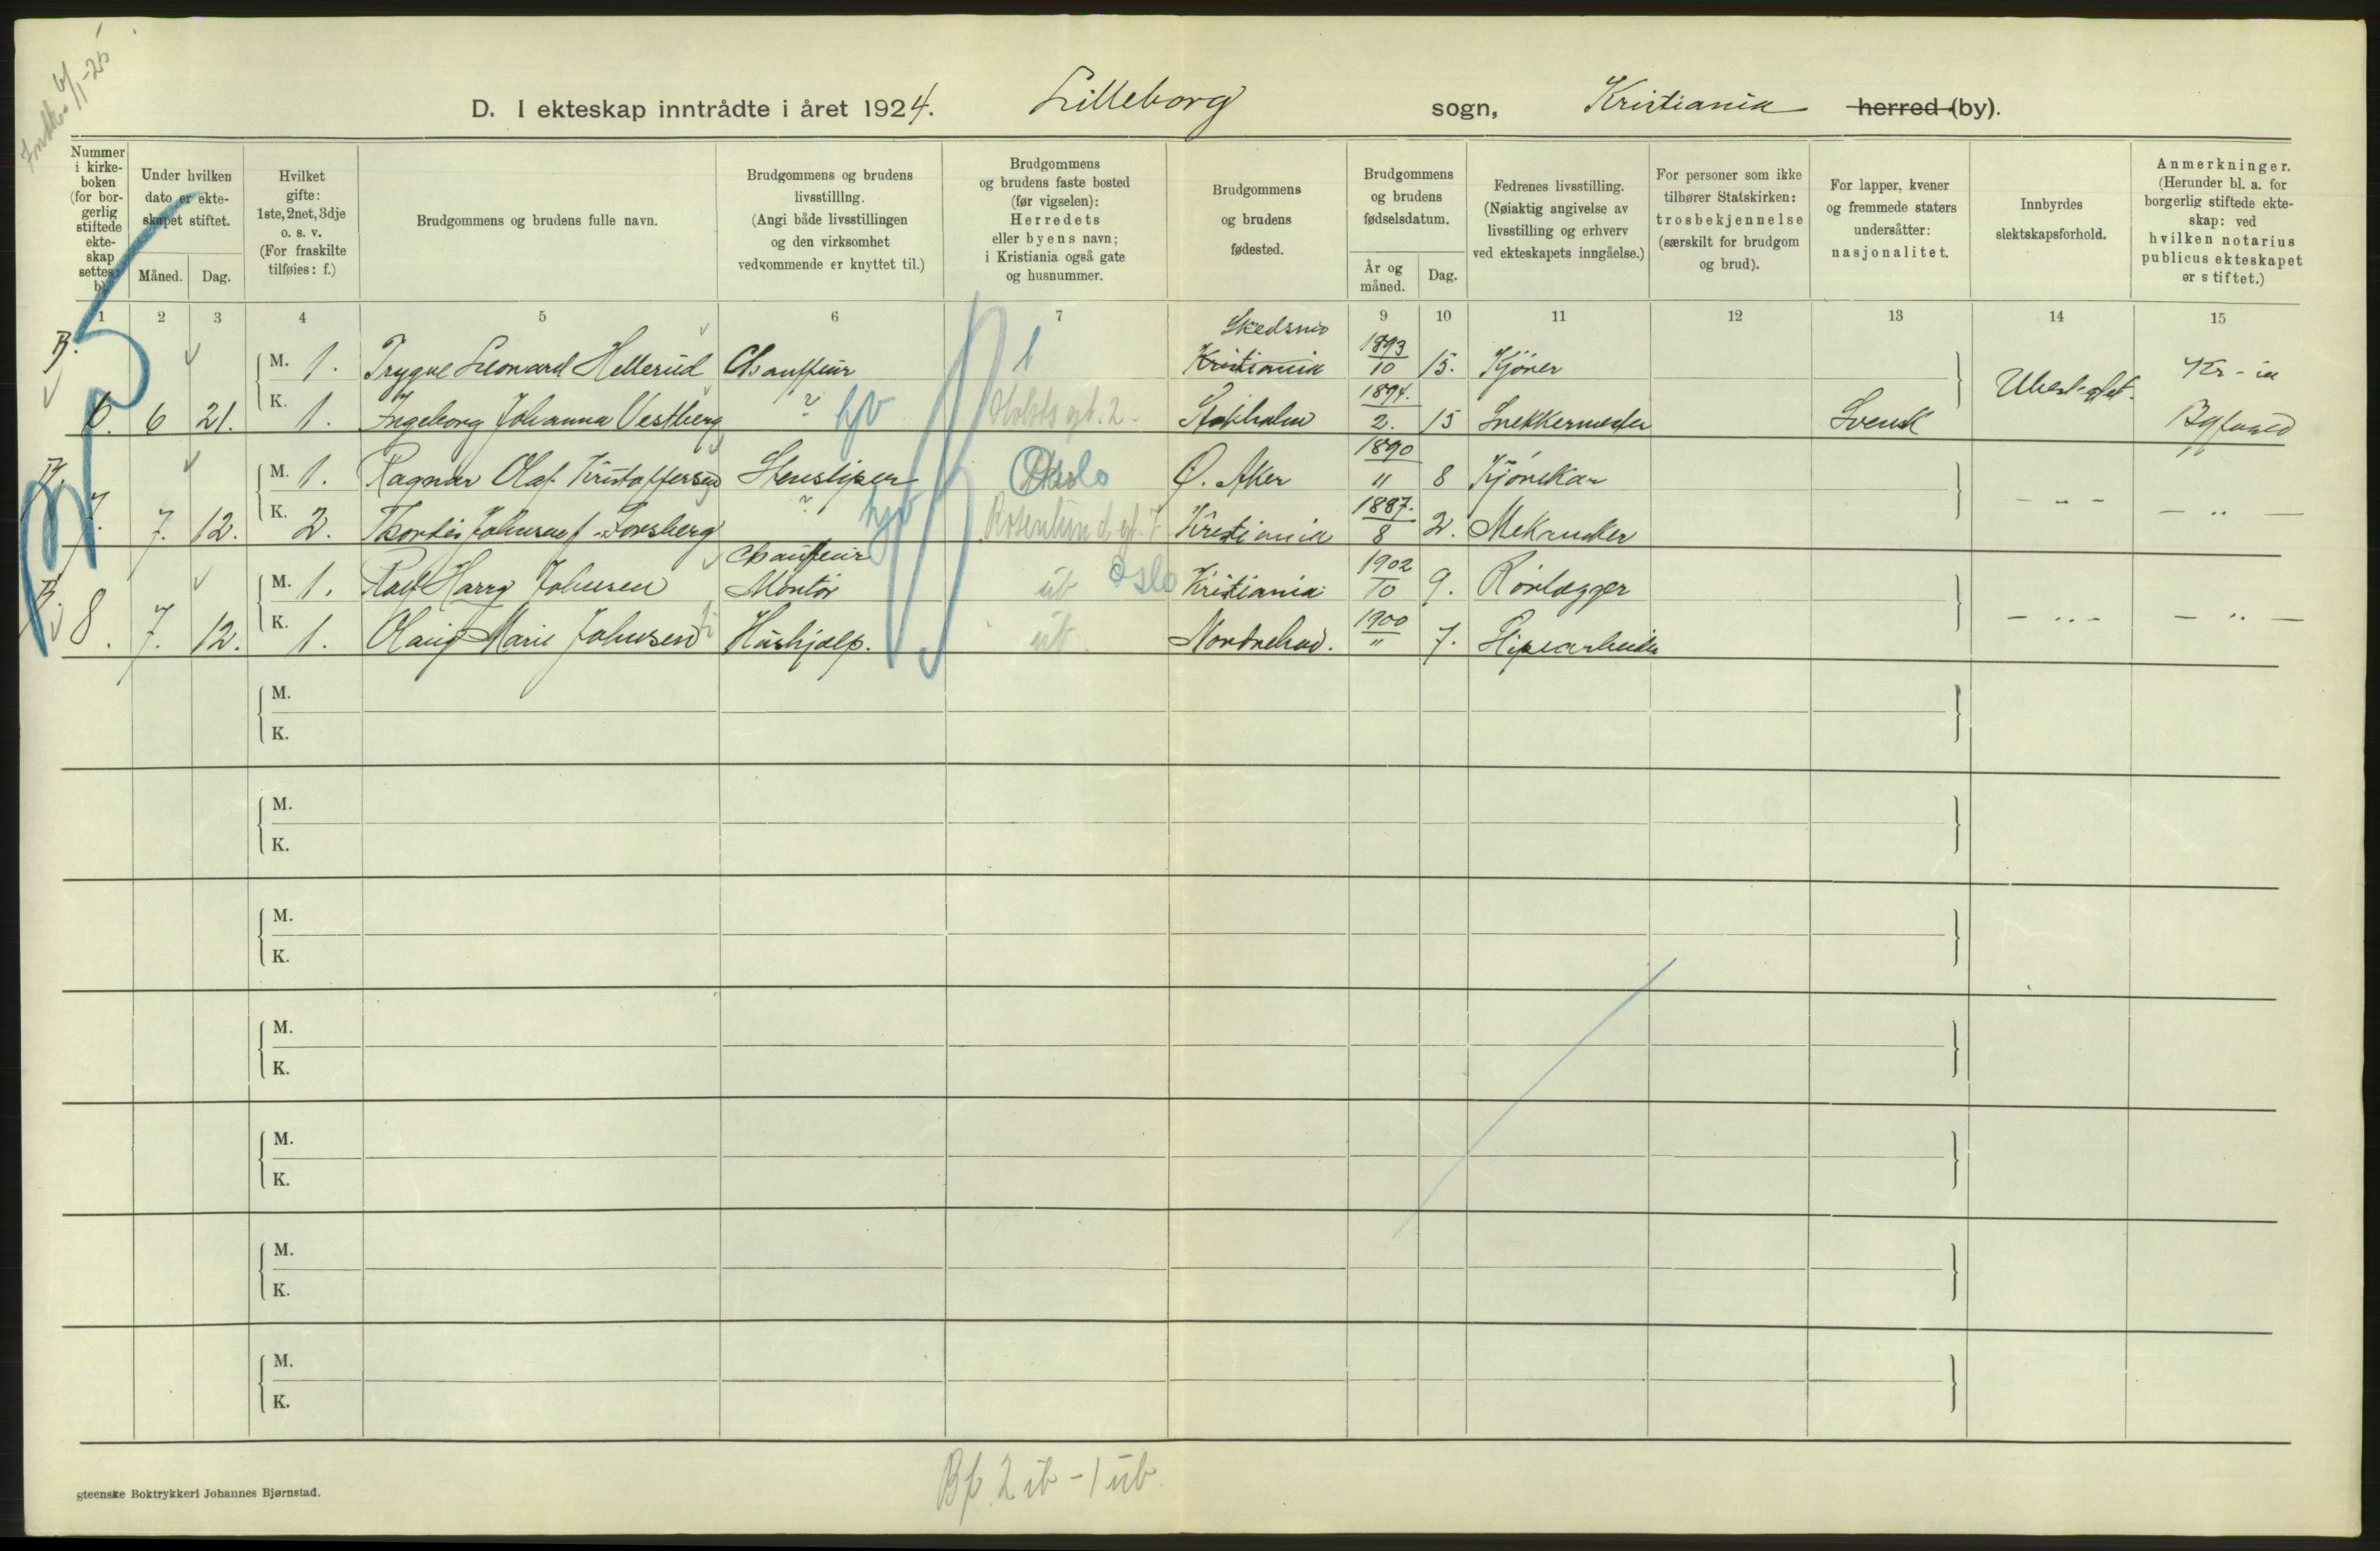 D. I ekteskap inntrådte i året 1924. Lilleborg sogn, Kristiania herred (by).
Nummer i kirke-boken (for bor-gerlig stiftede ekte-skap settes: b).
Under hvilken dato er ekte-skapet stiftet.
Måned. Dag.
Hvilket gifte: 1ste, 2net, 3dje o. s. v. (For fraskilte tilføies: f.)
Brudgommens og brudens fulle navn.
Brudgommens og brudens livsstilllng. (Angi både livsstillingen og den virksomhet vedkommende er knyttet til.)
Brudgommens og brudens faste bosted (før vigselen): Herredets eller byens navn; i Kristiania også gate og husnummer.
Brudgommens og brudens fødested.
Brudgommens og brudens fødselsdatum.
År og måned. Dag.
Fedrenes livsstilling. (Nøiaktig angivelse av livsstilling og erhverv ved ekteskapets inngåelse.)
For personer som ikke tilhører Statskirken: trosbekjennelse (særskilt for brudgom og brud).
For lapper, kvener og fremmede staters undersåtter: nasjonalitet.
Innbyrdes slektskapsforhold.
Anmerkninger. (Herunder bl. a. for borgerlig stiftede ekte-skap: ved hvilken notarius publicus ekteskapet er stiftet.)
1 2 3 4 5 6 7 8 9 10 11 12 13 14 15
M. 1. Trygve Leonard Hellerud Chauffeur 1 Skedsmo Kristiania 1893 10 15. Kjører Kr-ia
6. 6 21. K. 1. Ingeborg Johanna Vestberg ? hv Holsts gt. 2 1894. 2. 15 Snekkermester Svensk Ubeslegtet. Byfogd
M. 1. Ragnar Olaf Kristoffersen Stensliper Oslo Ø. Aker 1890 11 8 Kjørekar
7. 7. 12. K. 2. Thordis Johnsen f. Forsberg ? hv Rosenlund gt. 7 Kristiania 1887. 8 2. - " -
M. 1. Rolf Harry Johnsen Chauffeur Montør ub Oslo Kristiania 1902 10 9. Rørlægger
8. 7. 12. K. 1. Olaug Marie Johnsen Hushjælp. ub. Norderhov. 1900 " 7. Slipearbeider - " - - " -
M.
K.
M.
K.
M.
K.
M.
K.
M.
K.
M.
K.
M.
K.
Bf. 2 ib - 1 ub.
steenske Boktrykkeri Johannes Bjørnstad.